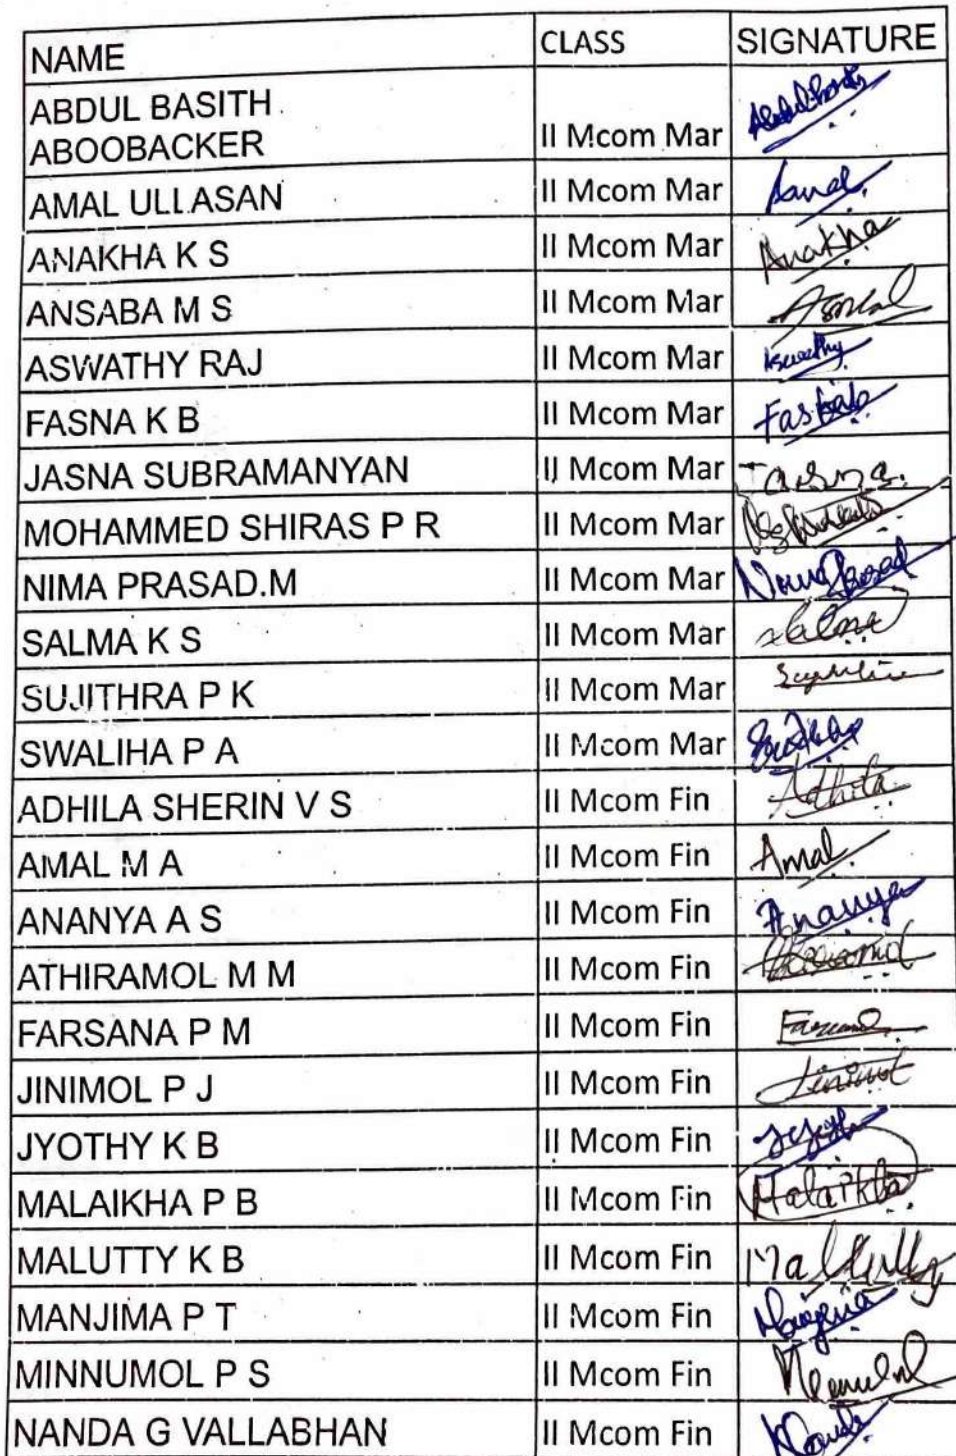 NAME CLASS SIGNATURE
ABDUL BASITH
ABOOBACKER II Mcom Mar
AMAL ULLASAN II Mcom Mar Amal
ANAKHA K S II Mcom Mar Anakha
ANSABA M S II Mcom Mar
ASWATHY RAJ II Mcom Mar Aswathy
FASNA K B II Mcom Mar
JASNA SUBRAMANYAN II Mcom Mar Jasna
MOHAMMED SHIRAS P R II Mcom Mar
NIMA PRASAD.M II Mcom Mar
SALMA K S II Mcom Mar Salma
SUJITHRA P K II Mcom Mar
SWALIHA P A II Mcom Mar
ADHILA SHERIN V S II Mcom Fin Adhila
AMAL M A II Mcom Fin Amal
ANANYA A S II Mcom Fin Ananya
ATHIRAMOL M M II Mcom Fin
FARSANA P M II Mcom Fin
JINIMOL P J II Mcom Fin Jinimol
JYOTHY K B II Mcom Fin
MALAIKHA P B II Mcom Fin Malaikha
MALUTTY K B II Mcom Fin Malutty
MANJIMA P T II Mcom Fin
MINNUMOL P S II Mcom Fin
NANDA G VALLABHAN II Mcom Fin